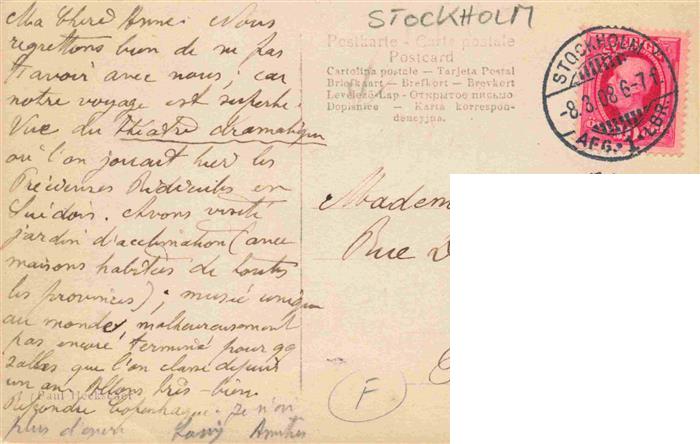 STOCKHOLM
Ma Chère Anne: Nous
regrettons bien de ne pas
t'avoir avec nous; car
notre voyage est superbe.
Vue du théâtre dramatique
où l'on jouait hier les
Précieuses Ridicules en
Suédois. Avons visité
jardin d'acclimation (avec
maisons habitées de toutes
les provinces); musée unique
au monde, malheureusement
pas encore terminé pour 99
salles que l'on classe depuis
un an. Allons très-bien.
Répondre Copenhague. Je n'ai
plus d'encre
Paul Heckscher
Postkarte – Carte postale
Postcard
Cartolina postale – Tarjeta Postal
Briefkaart – Brefkort – Brevkort
Levelező-Lap – Открытое письмо
Dopisnice – Karta korrespon-
dencyjna.
STOCKHOLM
-8.8.08 6-7 f
AFG. 1 LBR.
Madem
Rue D
F